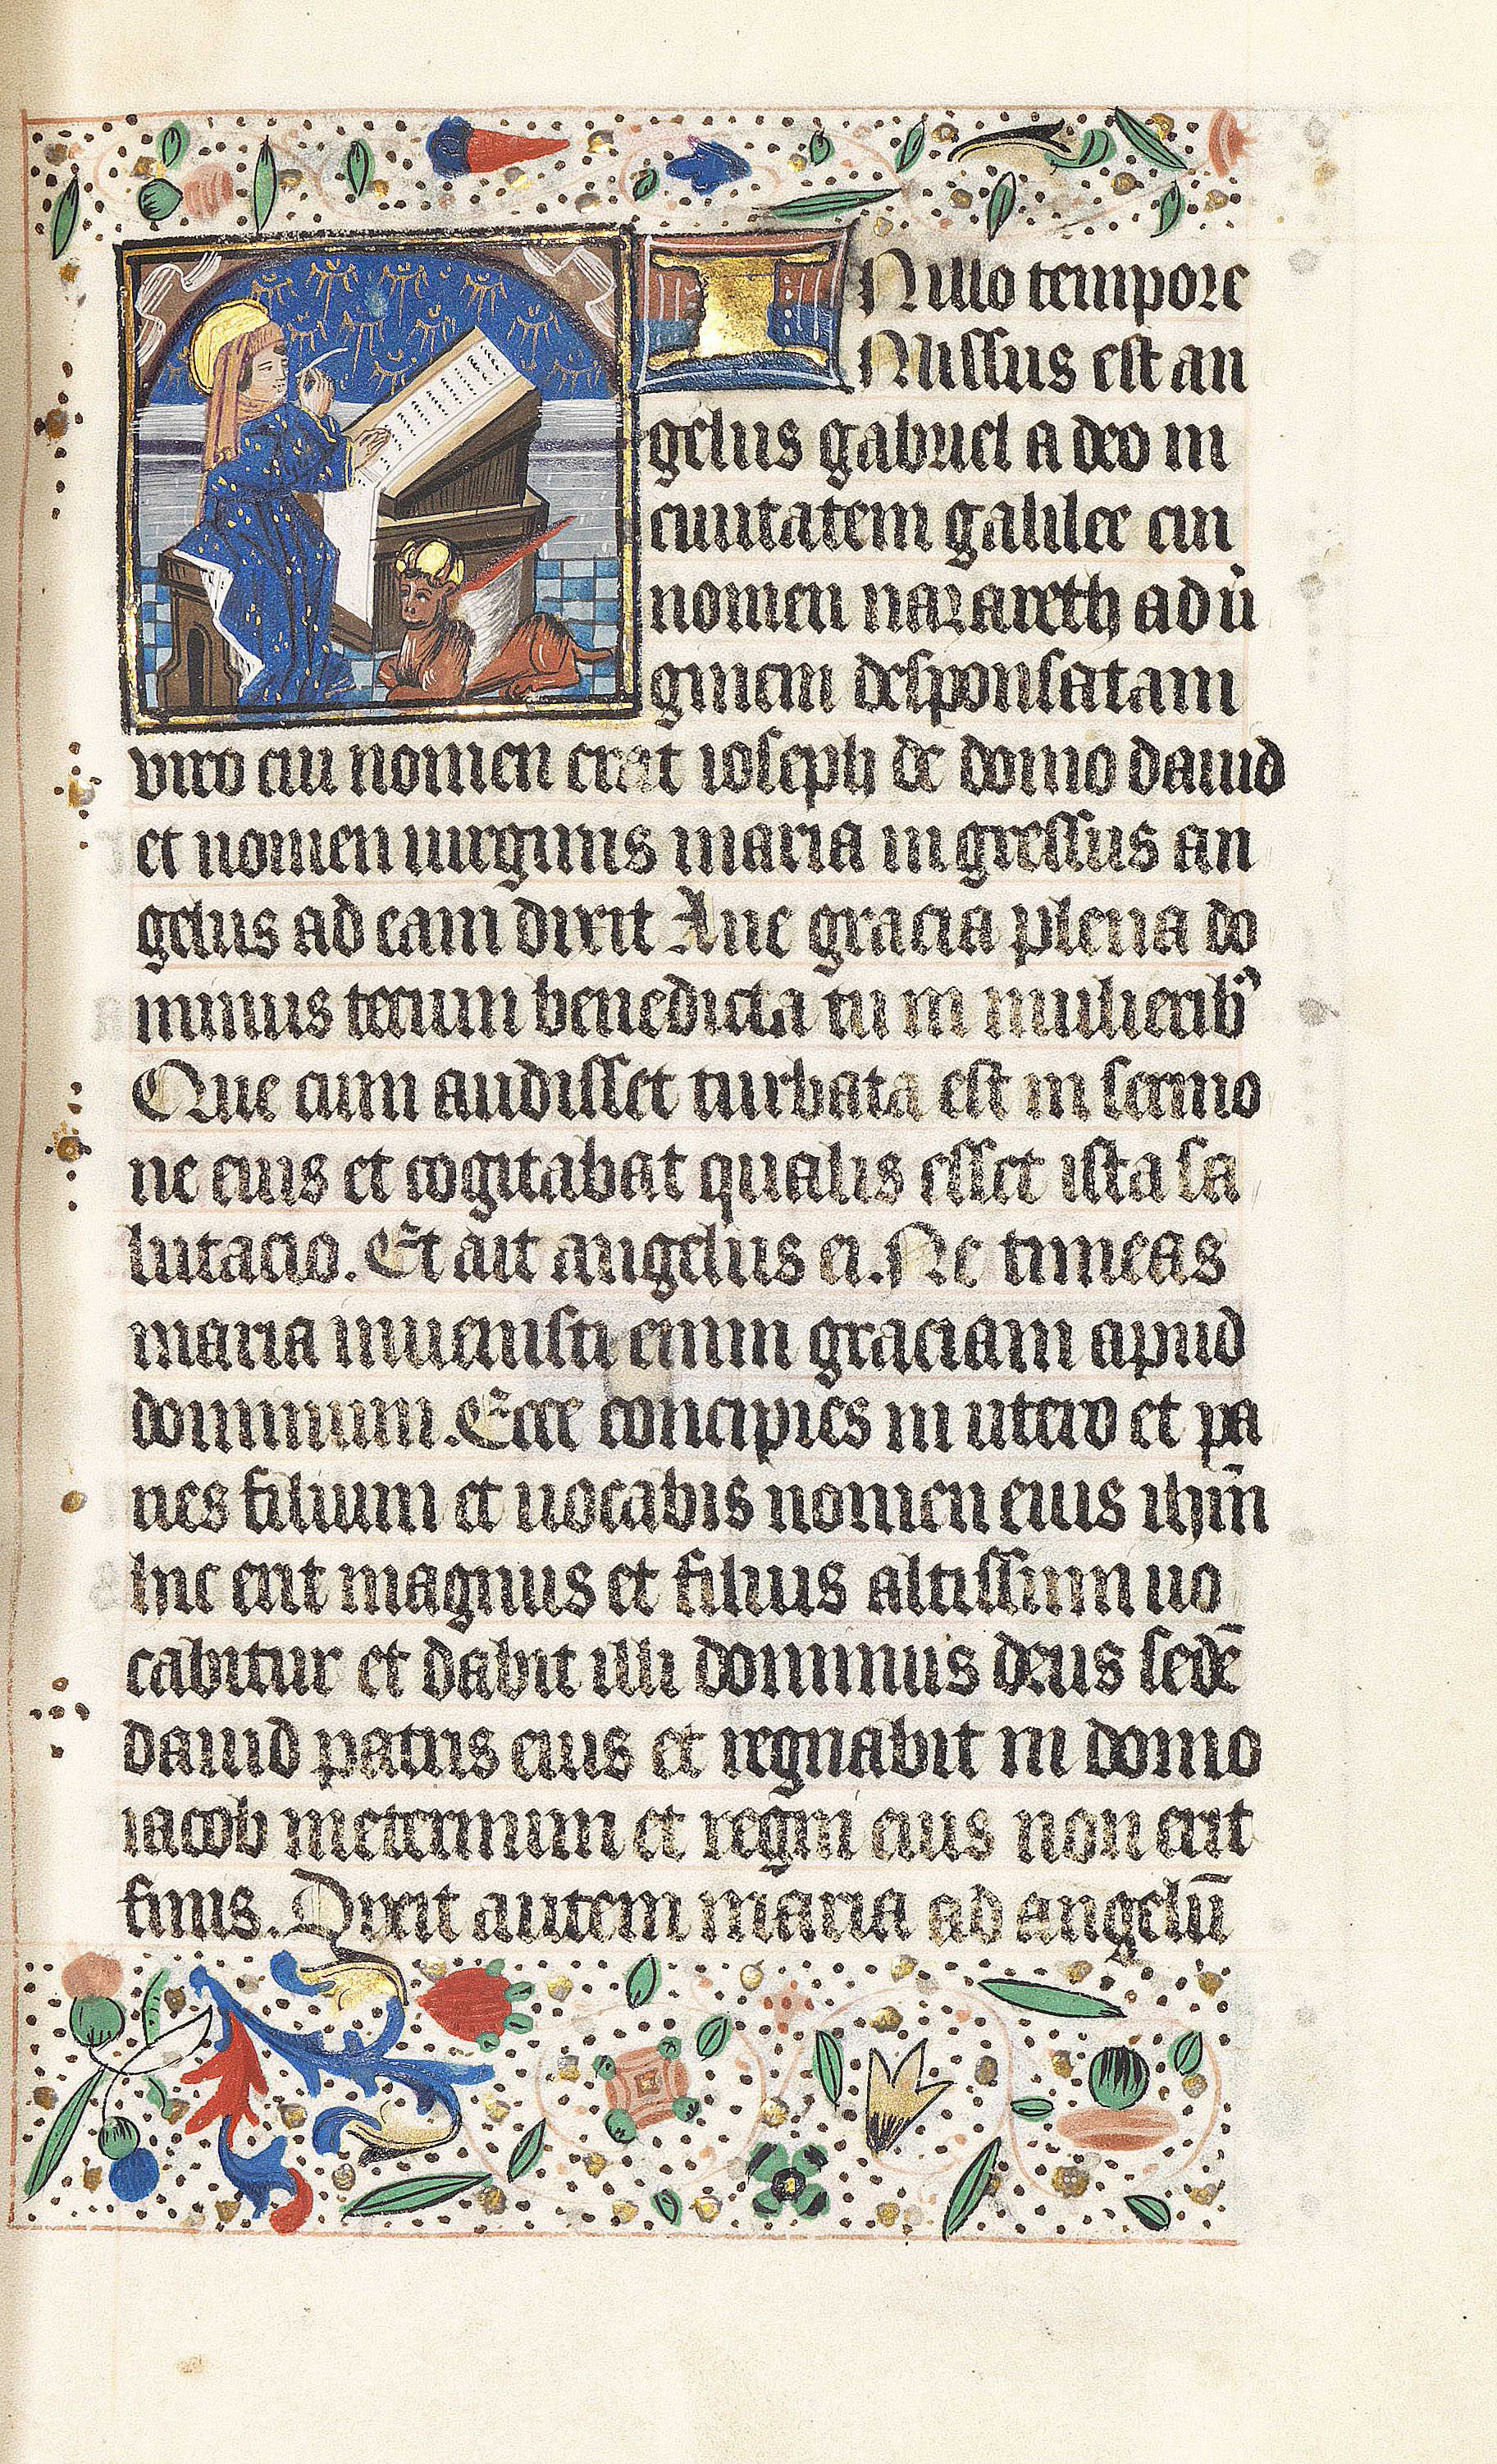 IN illo tempore
Missus est an
gelus gabriel a deo in
ciuitatem galilee cui
nomen nazareth ad uir
ginem desponsatam
viro cui nomen erat ioseph de domo dauid
et nomen uirginis maria ingressus an
gelus ad eam dixit Aue gracia plena do
minus tecum benedicta tu in mulieribꝰ
Que cum audisset turbata est in sermo
ne eius et cogitabat qualis esset ista sa
lutacio. Et ait angelus ei. Ne timeas
maria inuenisti enim graciam apud
dominum. Ecce concipies in utero et pa
ries filium et uocabis nomen eius ihm̄
hic erit magnus et filius altissimi uo
cabitur et dabit illi dominus deus sedē
dauid patris eius et regnabit in domo
iacob ineternum et regni eius non erit
finis. Dixit autem maria ad angelū